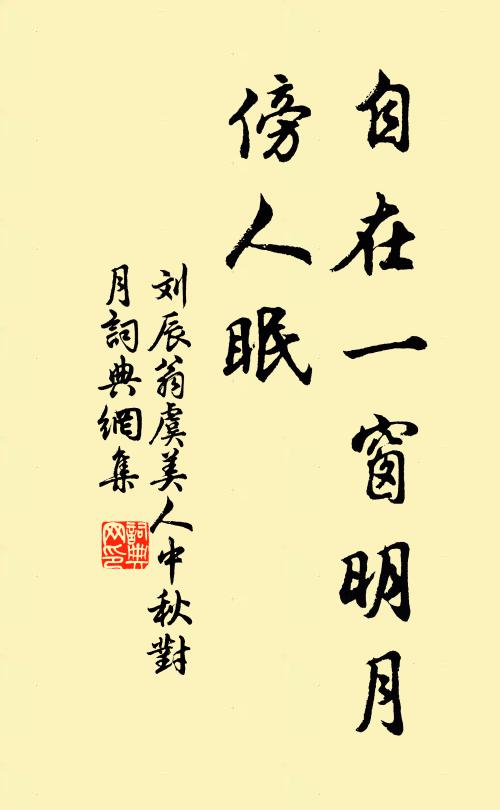 自在一窗明月
傍人眠
刘辰翁虞美人中秋對
月詞典網集
詞典
网印